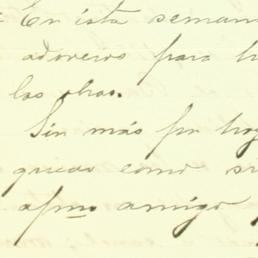 En ésta seman
para
las obras.
Sin más por hoy
quedo como su
afmo amigo